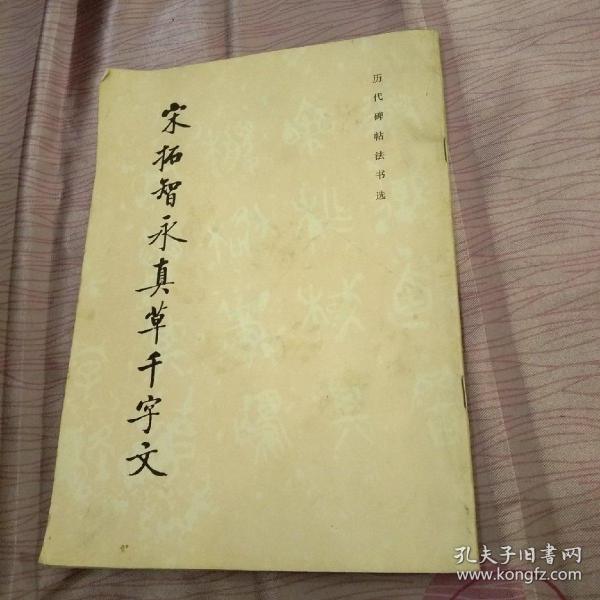 历代碑帖法书选
宋拓智永真草千字文
孔夫子旧书网
www.kongfz.com